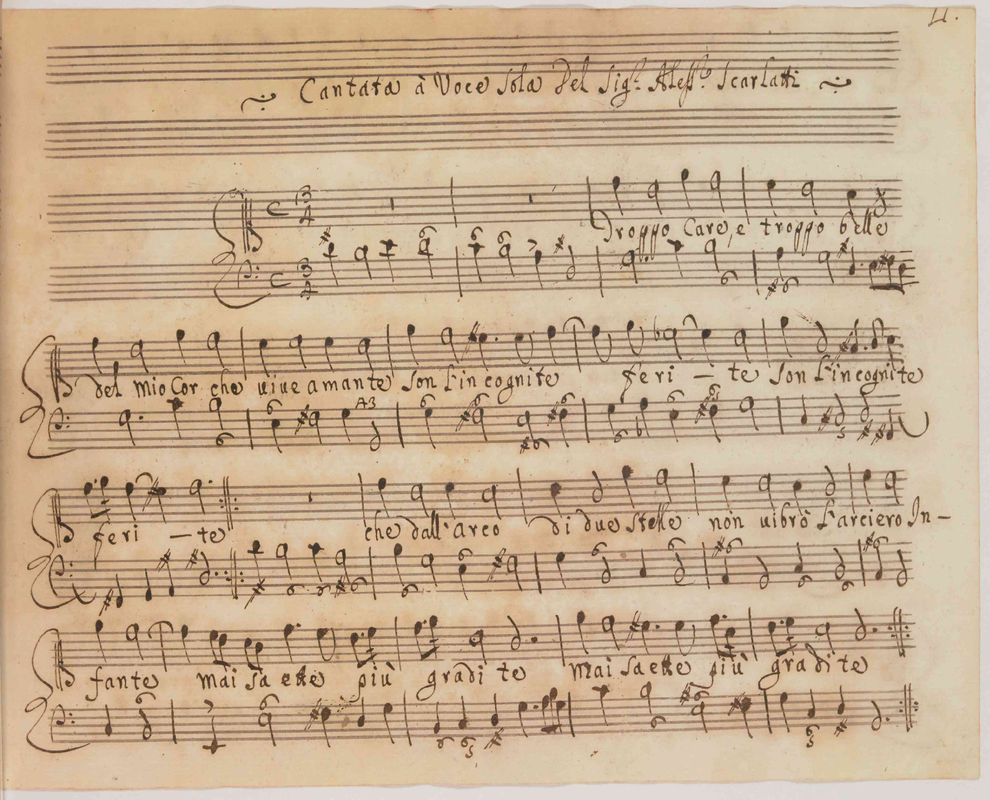 Cantata à Voce Sola Del Sig.r Aless.o Scarlatti
Troppo Care, e troppo belle
del mio Cor che viue amante son l'in cognite feri — te son l'incognite
feri — te che dall'arco di due stelle non uibrò l'arciero In —
fante mai sa ette più gradi te mai saette più gradite